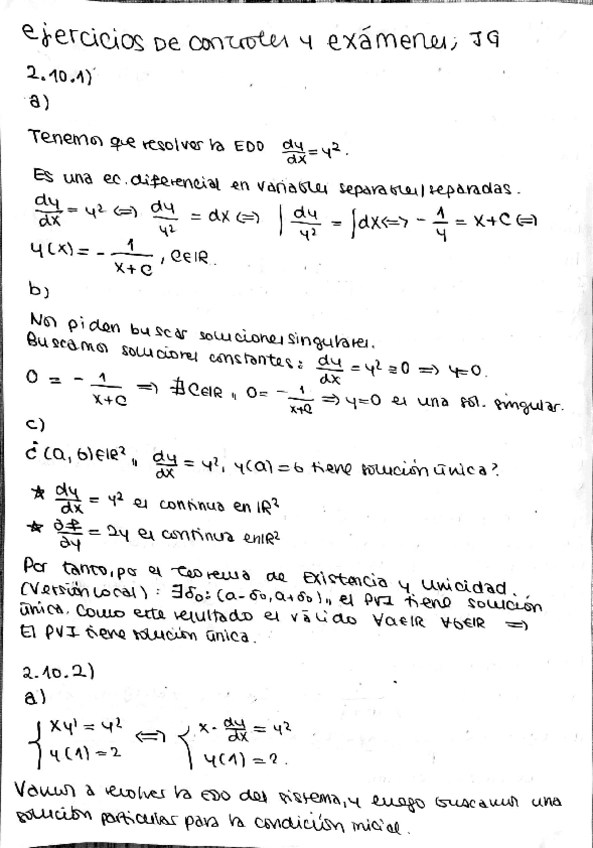 ejercicios de controles y exámenes, JG
2.10.1)
a)
Tenemos que resolver la EDO dy/dx = y².
Es una ec. diferencial en variables separables/separadas.
dy/dx = y² ⇔ dy/y² = dx ⇔ ∫ dy/y² = ∫dx ⇔ - 1/y = x+C ⇔
y(x) = - 1/(x+C), C∈ℝ.
b)
Nos piden buscar soluciones singulares.
Buscamos soluciones constantes: dy/dx = y² = 0 ⇒ y=0.
0 = - 1/(x+C) ⇒ ∄C∈ℝ, 0 = - 1/(x+C) ⇒ y=0 es una sol. singular.
c)
¿(a, b)∈ℝ², dy/dx = y², y(a)=b tiene solución única?
★ dy/dx = y² es continua en ℝ²
★ ∂f/∂y = 2y es continua en ℝ²
Por tanto, por el Teorema de Existencia y Unicidad.
(Versión Local): ∃δ₀: (a-δ₀, a+δ₀), el PVI tiene solución
única. Como este resultado es válido ∀a∈ℝ ∀b∈ℝ ⇒
El PVI tiene solución única.
2.10.2)
a)
{ xy' = y² ; y(1) = 2 ⇔ { x· dy/dx = y² ; y(1) = 2.
Vamos a resolver la EDO del sistema, y luego buscamos una
solución particular para la condición inicial.